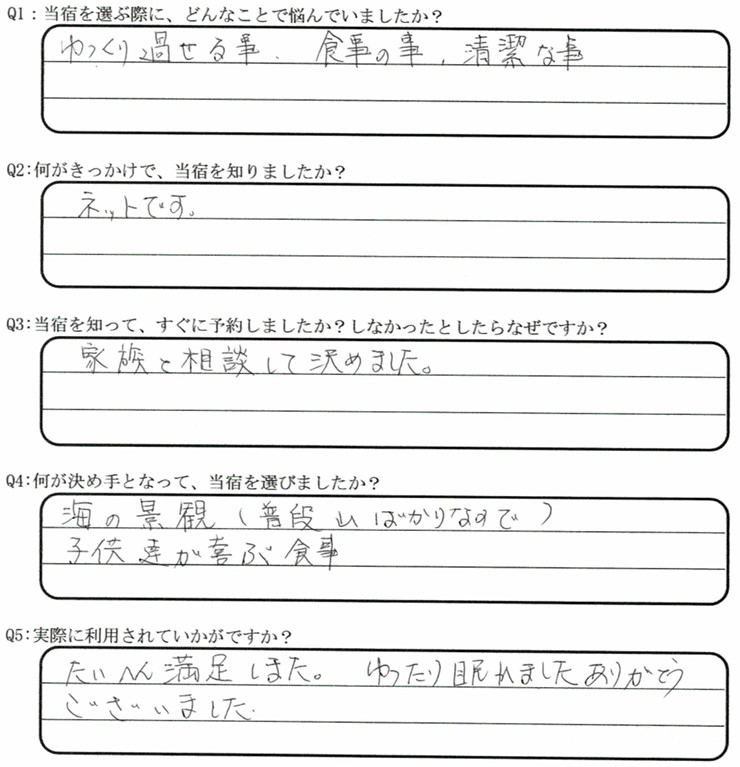 Q1：当宿を選ぶ際に、どんなことで悩んでいましたか？
ゆっくり過せる事. 食事の事, 清潔な事
Q2:何がきっかけで、当宿を知りましたか？
ネットです。
Q3:当宿を知って、すぐに予約しましたか？しなかったとしたらなぜですか？
家族と相談して決めました。
Q4:何が決め手となって、当宿を選びましたか？
海の景観（普段山ばかりなので）
子供達が喜ぶ食事
Q5:実際に利用されていかがですか？
たいへん満足しまた。 ゆったり眠れましたありがとう
ございました.